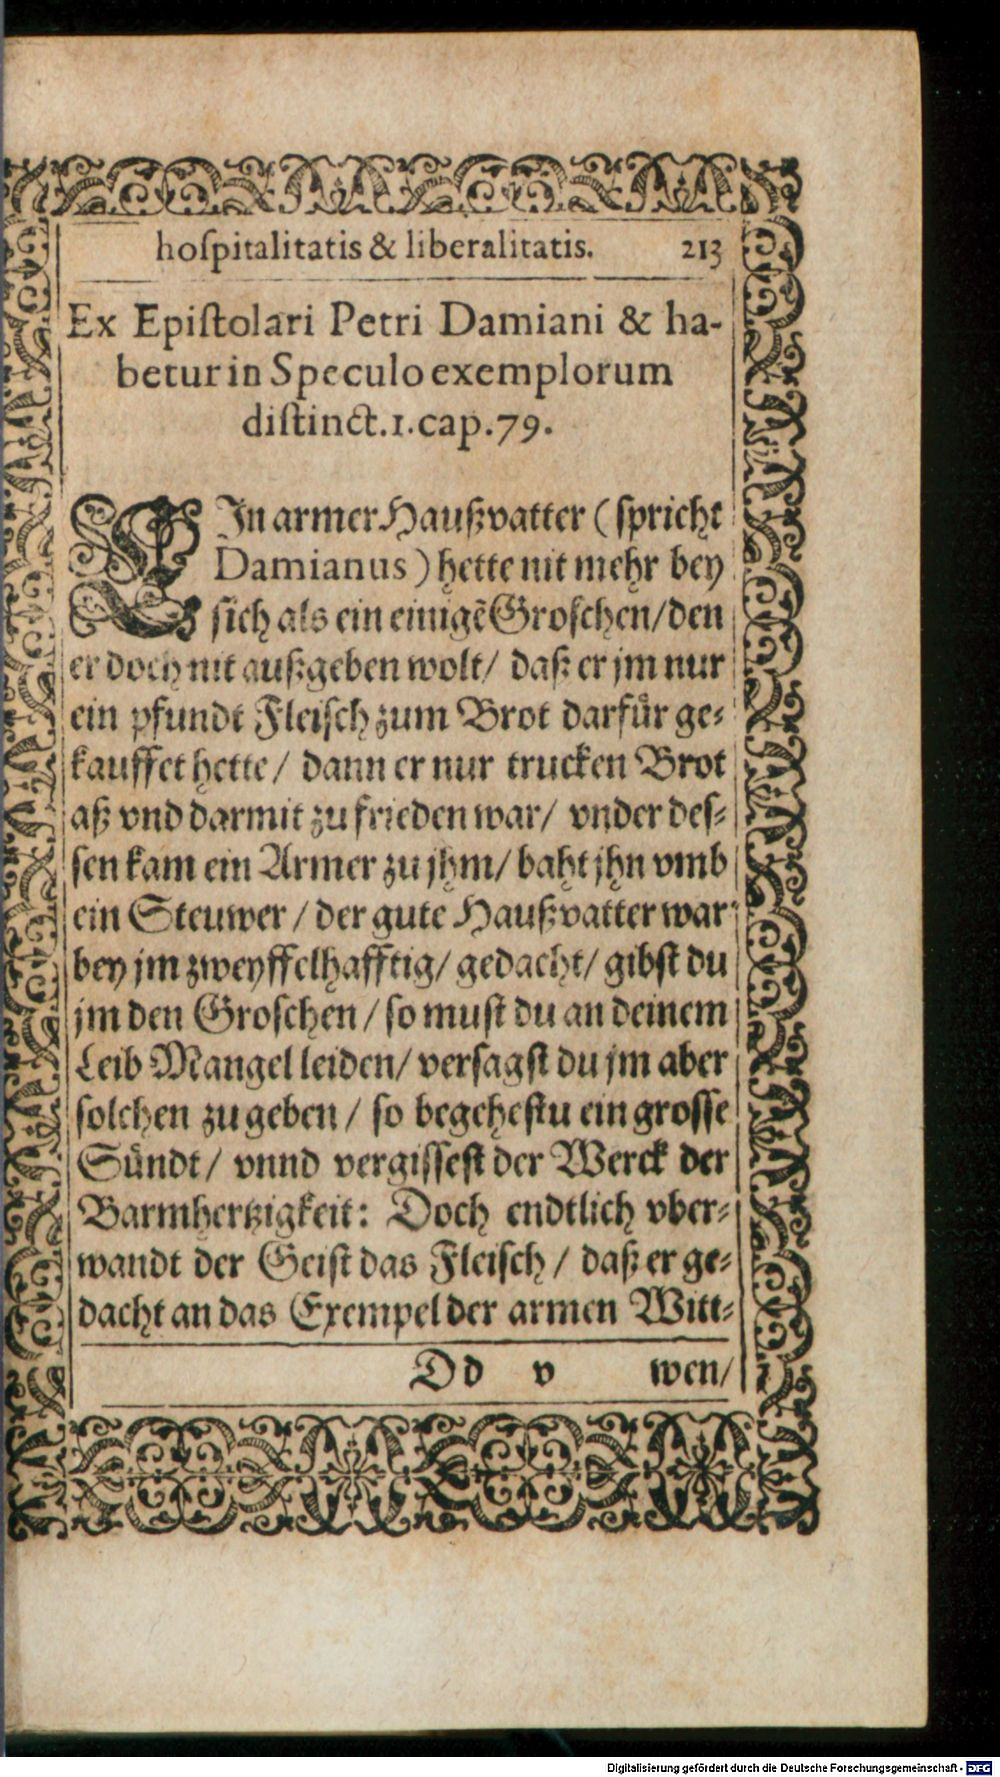 hoſpitalitatis & liberalitatis. 213
Ex Epiſtolari Petri Damiani & ha-
betur in Speculo exemplorum
diſtinct. 1. cap. 79.
EIn armer Haußvatter (ſpricht
Damianus) hette nit mehr bey
ſich als ein einigẽ Groſchen/ den
er doch nit außgeben wolt/ daß er jm nur
ein pfundt Fleiſch zum Brot darfuͤr ge-
kauffet hette/ dann er nur trucken Brot
aß vnd darmit zu frieden war/ vnder deſ-
ſen kam ein Armer zu jhm/ baht jhn vmb
ein Steuwer/ der gute Haußvatter war
bey jm zweyffelhafftig/ gedacht/ gibſt du
jm den Groſchen/ ſo muſt du an deinem
Leib Mangel leiden/ verſagſt du jm aber
ſolchen zu geben/ ſo begeheſtu ein groſſe
Suͤndt/ vnnd vergiſſeſt der Werck der
Barmhertzigkeit: Doch endtlich vber-
wandt der Geiſt das Fleiſch/ daß er ge-
dacht an das Exempel der armen Witt-
Dd v wen/
Digitalisierung gefördert durch die Deutsche Forschungsgemeinschaft - DFG